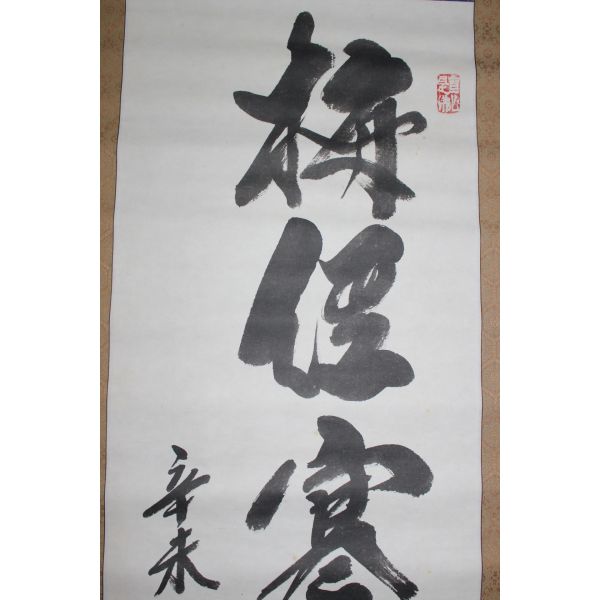 梅經寒
辛未